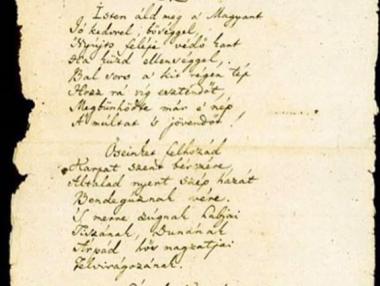 Isten áld meg a Magyart
Jó kedvvel, bőséggel,
Nyújts feléje védő kart
Ha küzd ellenséggel,
Bal sors a kit régen tép
Hozz rá víg esztendőt,
Megbűnhődte már e' nép
A múltat 's jövendőt!
Őseinket felhozád
Karpat szent bérczére,
Általad nyert szép hazát
Bendegúznak vére.
'S merre zúgnak habjai
Tiszának, Dunának
Árpád hős magzatjai
Felvirágozának.